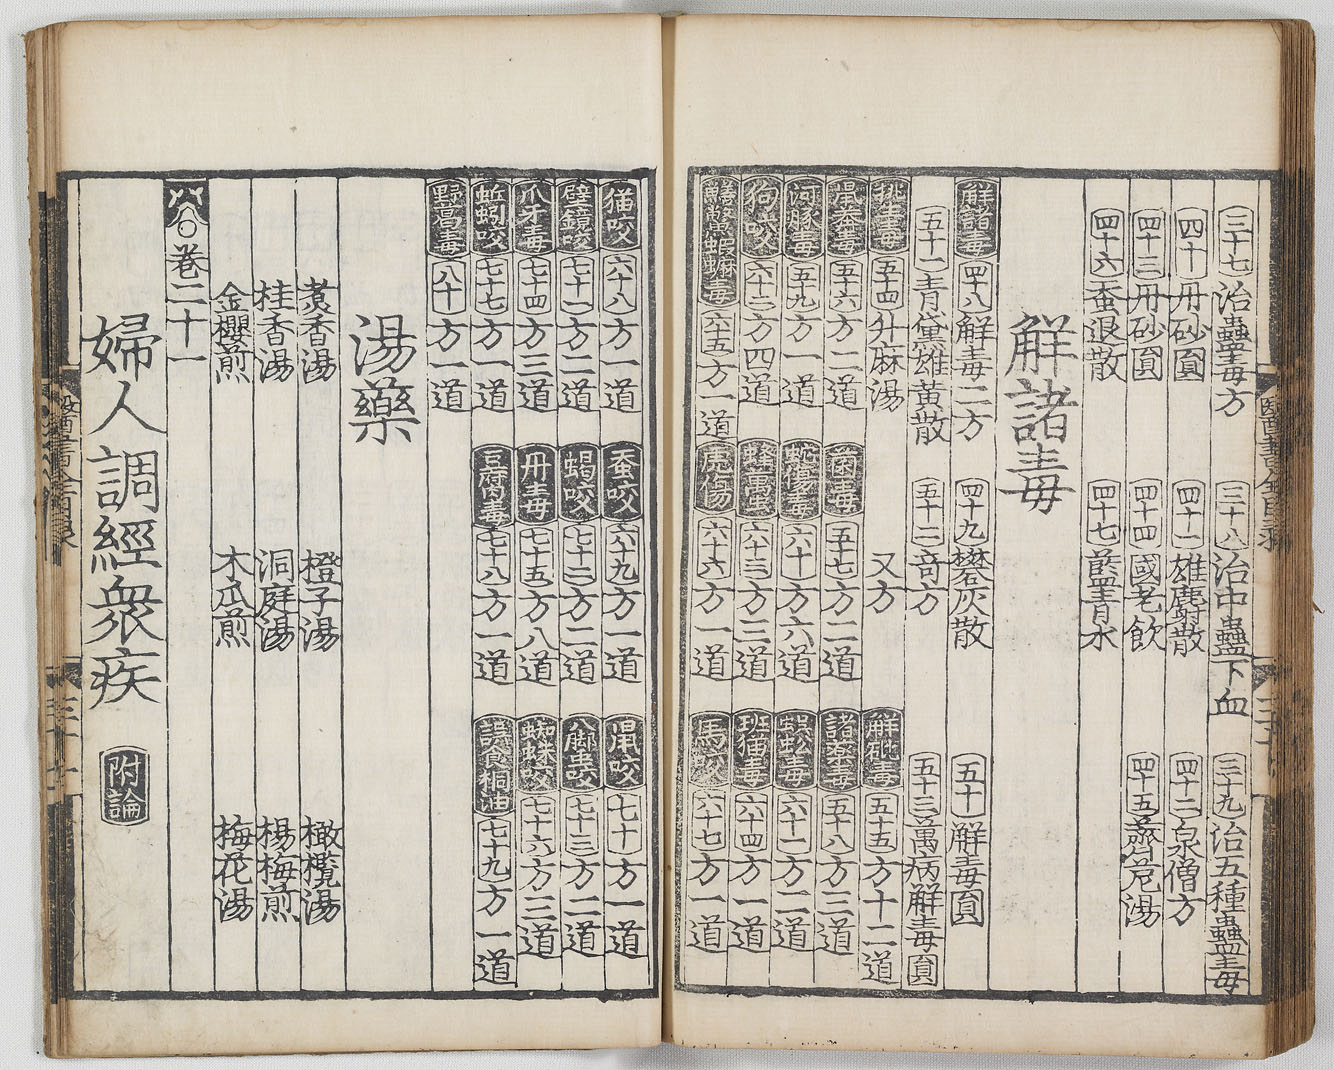 三十七治蠱毒方 三十八治中蠱下血 三十九治五種蠱毒
四十丹砂圓 四十一雄麝散 四十二泉僧方
四十三丹砂圓 四十四國老飲 四十五薺苨湯
四十六蚕退散 四十七藍青水
解諸毒
解諸毒 四十八解毒二方 四十九礬灰散 五十解毒圓
五十一青黛雄黃散 五十二竒方 五十三萬病解毒圓
挑生毒 五十四升麻湯 又方 解砒毒 五十五方十二道
鼠莽毒 五十六方二道 菌毒 五十七方二道 諸藥毒 五十八方三道
河豚毒 五十九方一道 蛇傷毒 六十方六道 蜈蚣毒 六十一方二道
狗咬 六十二方四道 蜂蠆螫 六十三方三道 班猫毒 六十四方一道
鱔鱉蝦蟆毒 六十五方一道 虎傷 六十六方一道 馬咬 六十七方一道
猫咬 六十八方一道 蚕咬 六十九方一道 鼠咬 七十方一道
壁鏡咬 七十一方二道 蝎咬 七十二方二道 八脚虫咬 七十三方二道
爪才毒 七十四方三道 丹毒 七十五方八道 蜘蛛咬 七十六方三道
蚯蚓咬 七十七方一道 豆腐毒 七十八方一道 誤食桐油 七十九方一道
野芻毒 八十方一道
湯藥
橙子湯 橄欖湯
桂香湯 洞庭湯 楊梅煎
金櫻煎 木瓜煎 梅花湯
卷二十一
婦人調經衆疾 附論